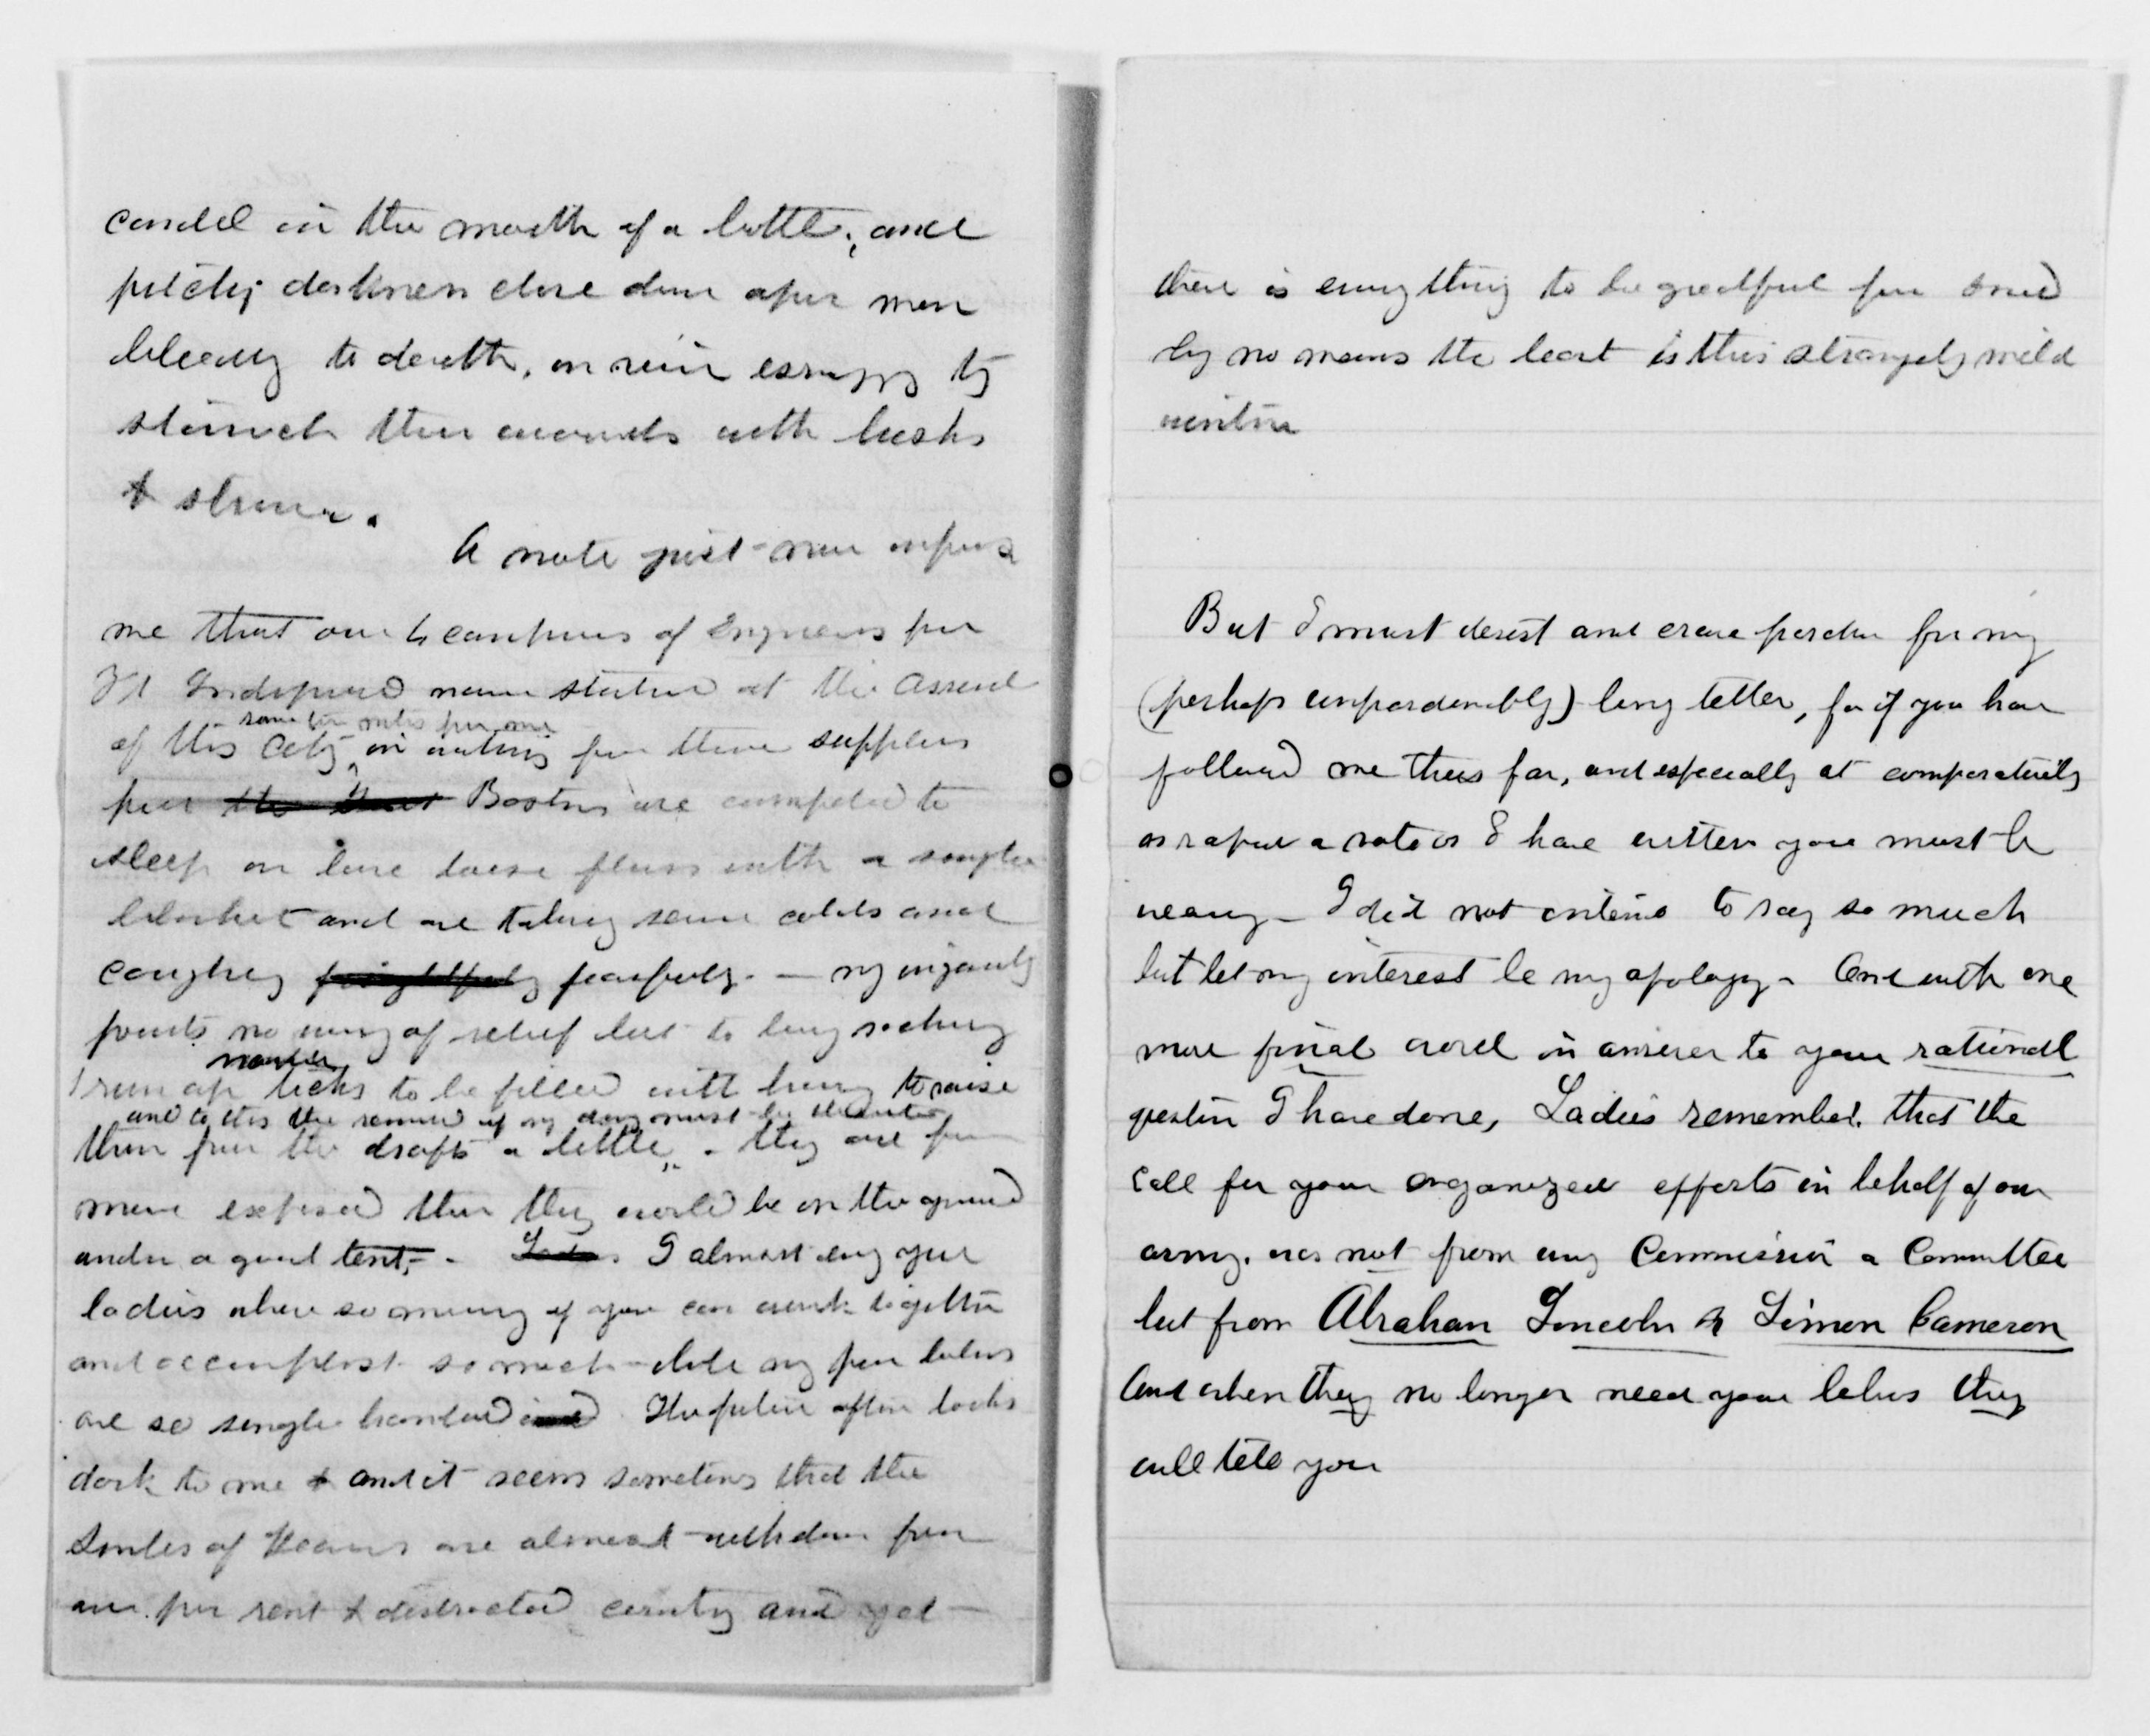 candel in the mouth of a bottle, and
pitchy darkness close down upon men
bleeding to death, or vain essaying to
stanch their wounds with husks
& straw.
A note just now informs
me that our 4 companies of Engineers from
Ft Independence now stationed at the Assenal
some two miles from me
of this City, in waiting for their supplies
from Boston are compelled to
sleep on bare loose floors with a single
blanket and are taking severe colds and
coughing fearfully. — my ingenuity
points no way of relief but to buy sacking
number
run up ticks to be filled with hay to raise
and to this the remainder of my day must be devoted
them from the drafts a little. they are far
more exposed than they would be on the ground
under a good tent. - I almost envy you
ladies where so many of you can work together
and accomplish so much while my poor labors
are so single handed The future often looks
dark to me & and it seems sometimes that the
smiles of Heaven are almost withdrawn from
our poor rent & distracted country and yet —
there is everything to be greatful for and
by no means the least is this strangely mild
winter
But I must desist and crave pardon for my
(perhaps unpardonably) long letter, for if you have
followed me thus far, and especially at comparatively
as rapid a rate as I have written you must be
weary - I did not intend to say so much
but let my interest be my apology - And with one
more final word in answer to your rational
question I have done, Ladies remember. that the
call for your organized efforts in behalf of our
army. was not from any Commission or Committee
but from Abraham Lincoln & Simon Cameron
and when they no longer need your labors they
will tell you